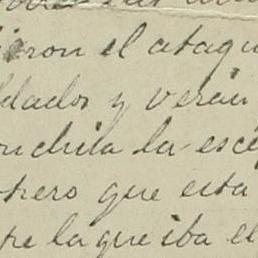 eron el ataqu
ldados y verán
onchita la esce
pero que esta
re la que iba el